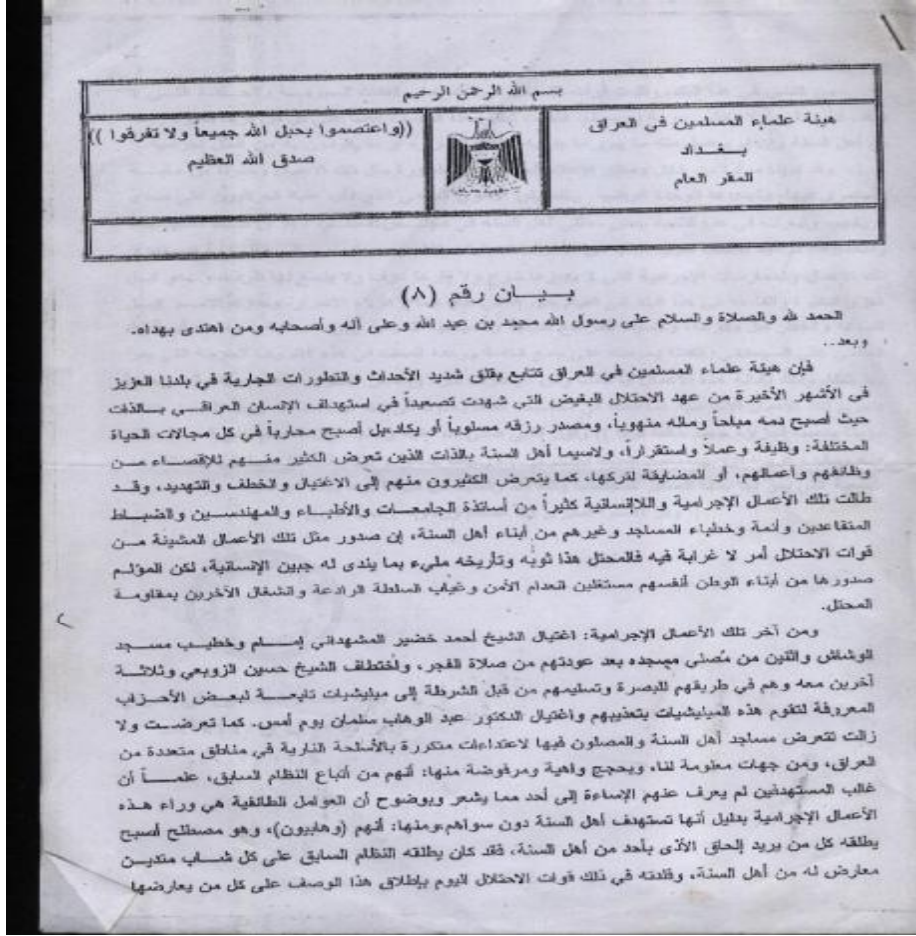 بسم الله الرحمن الرحيم
هيئة علماء المسلمين في العراق
بغداد
المقر العام
((واعتصموا بحبل الله جميعاً ولا تفرقوا ))
صدق الله العظيم
بيان رقم (٨)
الحمد لله والصلاة والسلام على رسول الله محمد بن عبد الله وعلى آله وأصحابه ومن اهتدى بهداه.
وبعد..
فإن هيئة علماء المسلمين في العراق تتابع بقلق شديد الأحداث والتطورات الجارية في بلدنا العزيز
في الأشهر الأخيرة من عهد الاحتلال البغيض التي شهدت تصعيداً في استهداف الإنسان العراقي بالذات
حيث أصبح دمه مباحاً وماله منهوباً، ومصدر رزقه مسلوباً أو يكاد،بل أصبح محارباً في كل مجالات الحياة
المختلفة: وظيفة وعملاً واستقراراً، ولاسيما أهل السنة بالذات الذين تعرض الكثير منهم للإقصاء من
وظائفهم وأعمالهم، أو المضايقة لتركها، كما يتعرض الكثيرون منهم إلى الاغتيال والخطف والتهديد، وقد
طالت تلك الأعمال الإجرامية واللاإنسانية كثيراً من أساتذة الجامعات والأطباء والمهندسين والضباط
المتقاعدين وأئمة وخطباء المساجد وغيرهم من أبناء أهل السنة، إن صدور مثل تلك الأعمال المشينة من
قوات الاحتلال أمر لا غرابة فيه فالمحتل هذا ثوبه وتأريخه مليء بما يندى له جبين الإنسانية، لكن المؤلم
صدورها من أبناء الوطن أنفسهم مستغلين انعدام الأمن وغياب السلطة الرادعة وانشغال الآخرين بمقاومة
المحتل.
ومن آخر تلك الأعمال الإجرامية: اغتيال الشيخ أحمد خضير المشهداني إمام وخطيب مسجد
الوشاش واثنين من مصلى مسجده بعد عودتهم من صلاة الفجر، واختطاف الشيخ حسين الزوبعي وثلاثة
آخرين معه وهم في طريقهم للبصرة وتسليمهم من قبل الشرطة إلى ميليشيات تابعة لبعض الأحزاب
المعروفة لتقوم هذه الميليشيات بتعذيبهم واغتيال الدكتور عبد الوهاب سلمان يوم أمس. كما تعرضت ولا
زالت تتعرض مساجد أهل السنة والمصلون فيها لاعتداءات متكررة بالأسلحة النارية في مناطق متعددة من
العراق، ومن جهات معلومة لنا، وبحجج واهية ومرفوضة منها: أنهم من أتباع النظام السابق، علماً أن
غالب المستهدفين لم يعرف عنهم الإساءة إلى أحد مما يشعر وبوضوح أن العوامل الطائفية هي وراء هذه
الأعمال الإجرامية بدليل أنها تستهدف أهل السنة دون سواهم،ومنها: أنهم (وهابيون)، وهو مصطلح أصبح
يطلقه كل من يريد إلحاق الأذى بأحد من أهل السنة، فقد كان يطلقه النظام السابق على كل شاب متدين
معارض له من أهل السنة، وقلدته في ذلك قوات الاحتلال اليوم بإطلاق هذا الوصف على كل من يعارضها